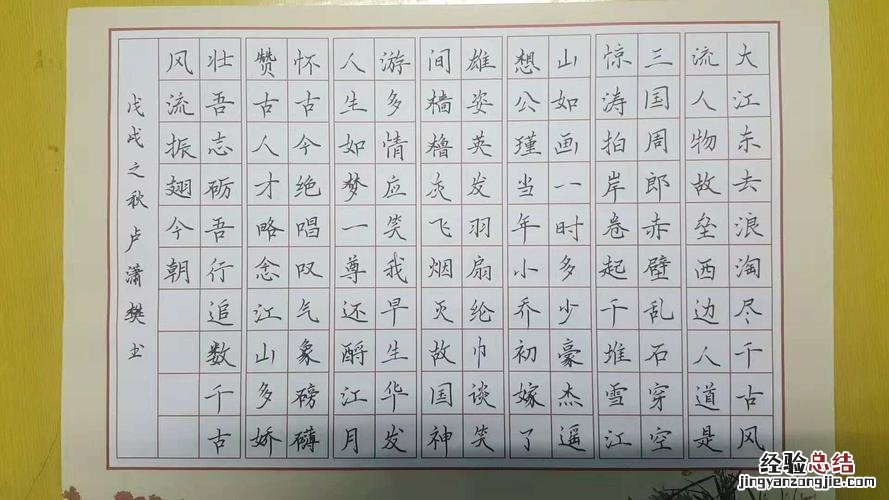 大江东去浪淘尽千古风
流人物故垒西边人道是
三国周郎赤壁乱石穿空
惊涛拍岸卷起千堆雪江
山如画一时多少豪杰遥
想公瑾当年小乔初嫁了
雄姿英发羽扇纶巾谈笑
间樯橹灰飞烟灭故国神
游多情应笑我早生华发
人生如梦一尊还酹江月
怀古今绝唱叹气象磅礴
赞古人才略念江山多娇
壮吾志砺吾行追数千古
风流振翅今朝
戊戌之秋卢潇樊书
经验总结
jingyanzongjie.com